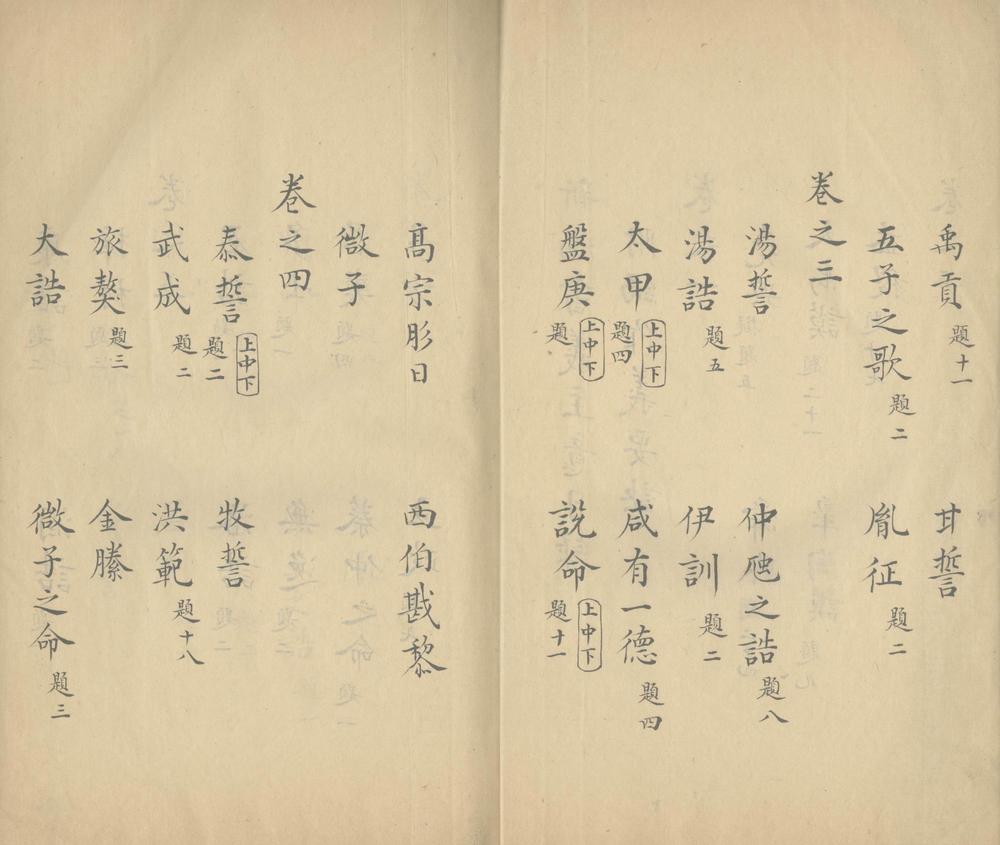 禹貢 題十一 甘誓
五子之歌 題二 胤征 題二
卷之三
湯誓 仲虺之誥 題八
湯誥 題五 伊訓 題二
太甲 上中下 題四 咸有一德 題四
盤庚 上中下 題 說命 上中下 題十一
高宗肜日 西伯戡黎
微子
卷之四
泰誓 上中下 題二 牧誓
武成 題二 洪範 題十八
旅獒 題三 金縢
大誥 微子之命 題三